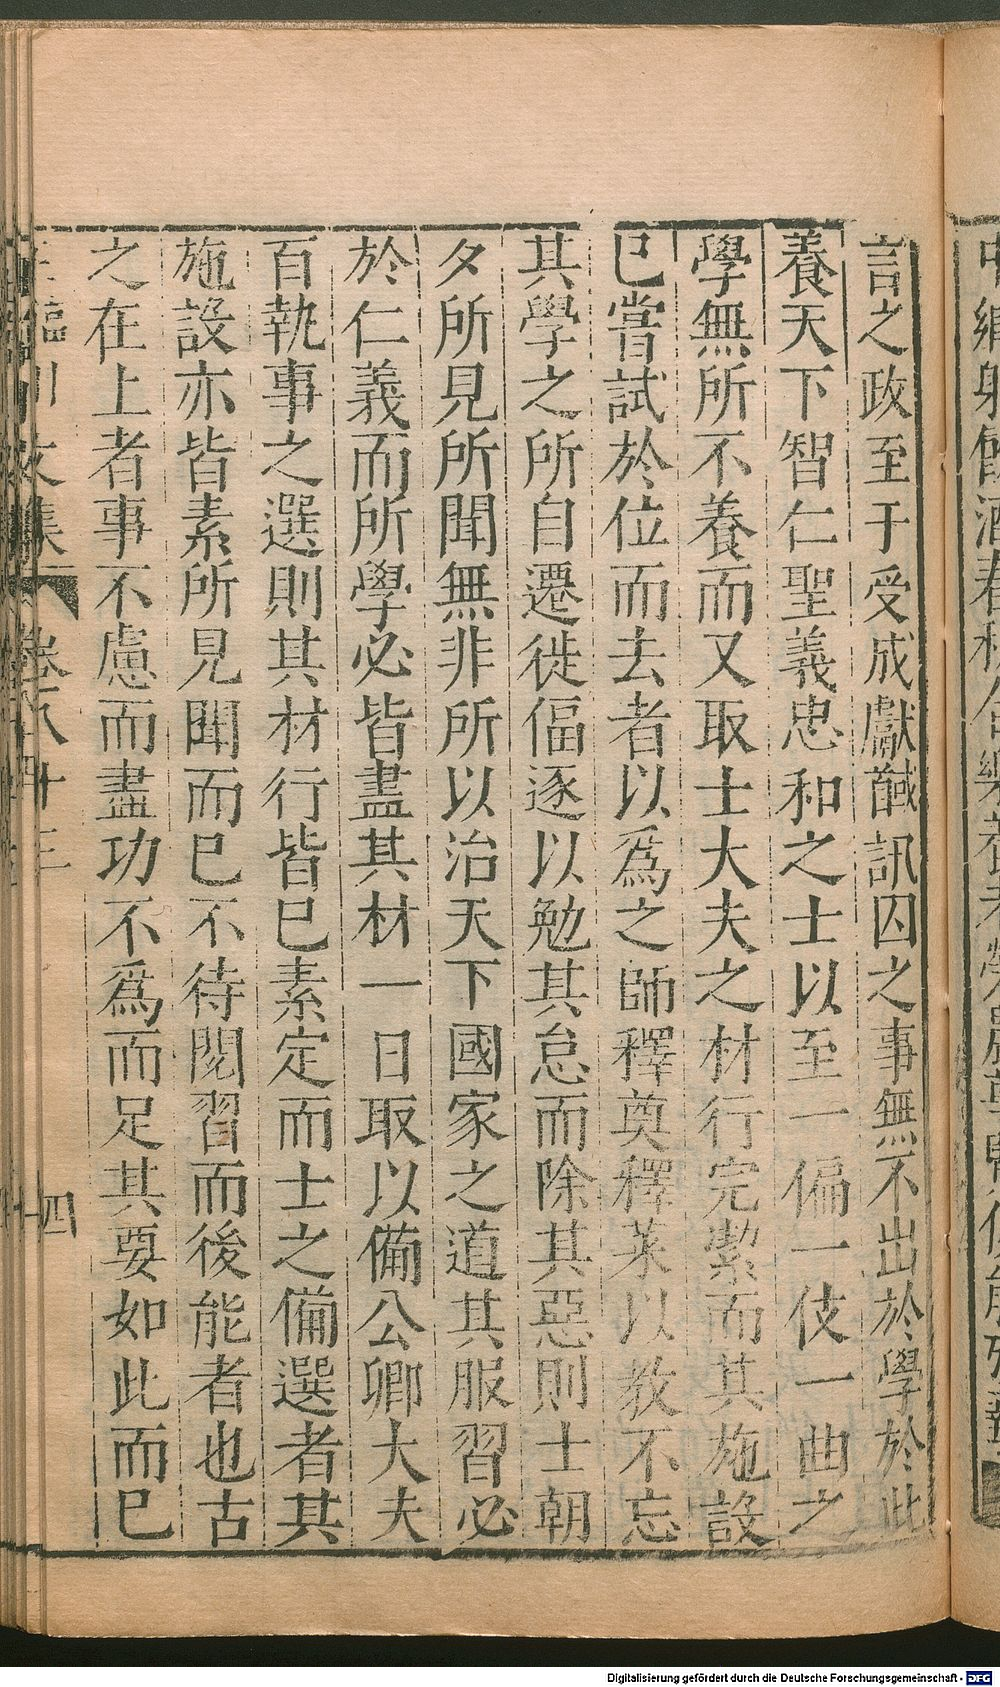 言之政至于受成獻馘訊囚之事無不出於學於此
養天下智仁聖義忠和之士以至一偏一伎一曲之
學無所不養而又取士大夫之材行完潔而其施設
已嘗試於位而去者以爲之師釋奠釋菜以教不忘
其學之所自遷徙偪逐以勉其怠而除其惡則士朝
夕所見所聞無非所以治天下國家之道其服習必
於仁義而所學必皆盡其材一日取以備公卿大夫
百執事之選則其材行皆已素定而士之備選者其
施設亦皆素所見聞而已不待閱習而後能者也古
之在上者事不慮而盡功不爲而足其要如此而已
文集 卷八十三 四
Digitalisierung gefördert durch die Deutsche Forschungsgemeinschaft - DFG